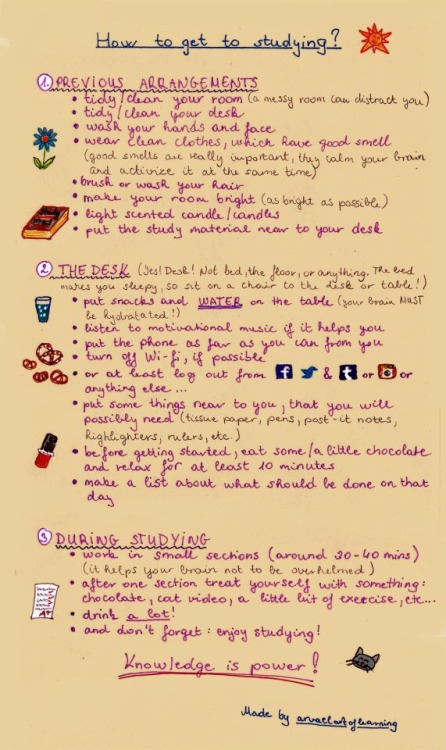 How to get to studying?
1. PREVIOUS ARRANGEMENTS
• tidy/clean your room (a messy room can distract you)
• tidy/clean your desk
• wash your hands and face
• wear clean clothes, which have good smell
(good smells are really important, they calm your brain
and activize it at the same time)
• brush or wash your hair
• make your room bright (as bright as possible)
• light scented candle/candles
• put the study material near to your desk
2. THE DESK (Yes! Desk! Not bed, the floor, or anything. The bed
makes you sleepy, so sit on a chair to the desk or table!)
• put snacks and WATER on the table (your brain MUST
be hydratated!)
• listen to motivational music if it helps you
• put the phone as far as you can from you
• turn off Wi-fi, if possible
• or at least log out from f & t or or
anything else...
• put some things near to you, that you will
possibly need (tissue paper, pens, post-it notes,
highlighters, rulers, etc.)
• before getting started, eat some/a little chocolate
and relax for at least 10 minutes
• make a list about what should be done on that
day
3. DURING STUDYING
• work in small sections (around 20-40 mins)
(it helps your brain not to be overhelmed)
• after one section treat yourself with something:
chocolate, cat video, a little bit of exercise, etc...
• drink a lot!
• and don't forget: enjoy studying!
A+
Knowledge is power!
Made by